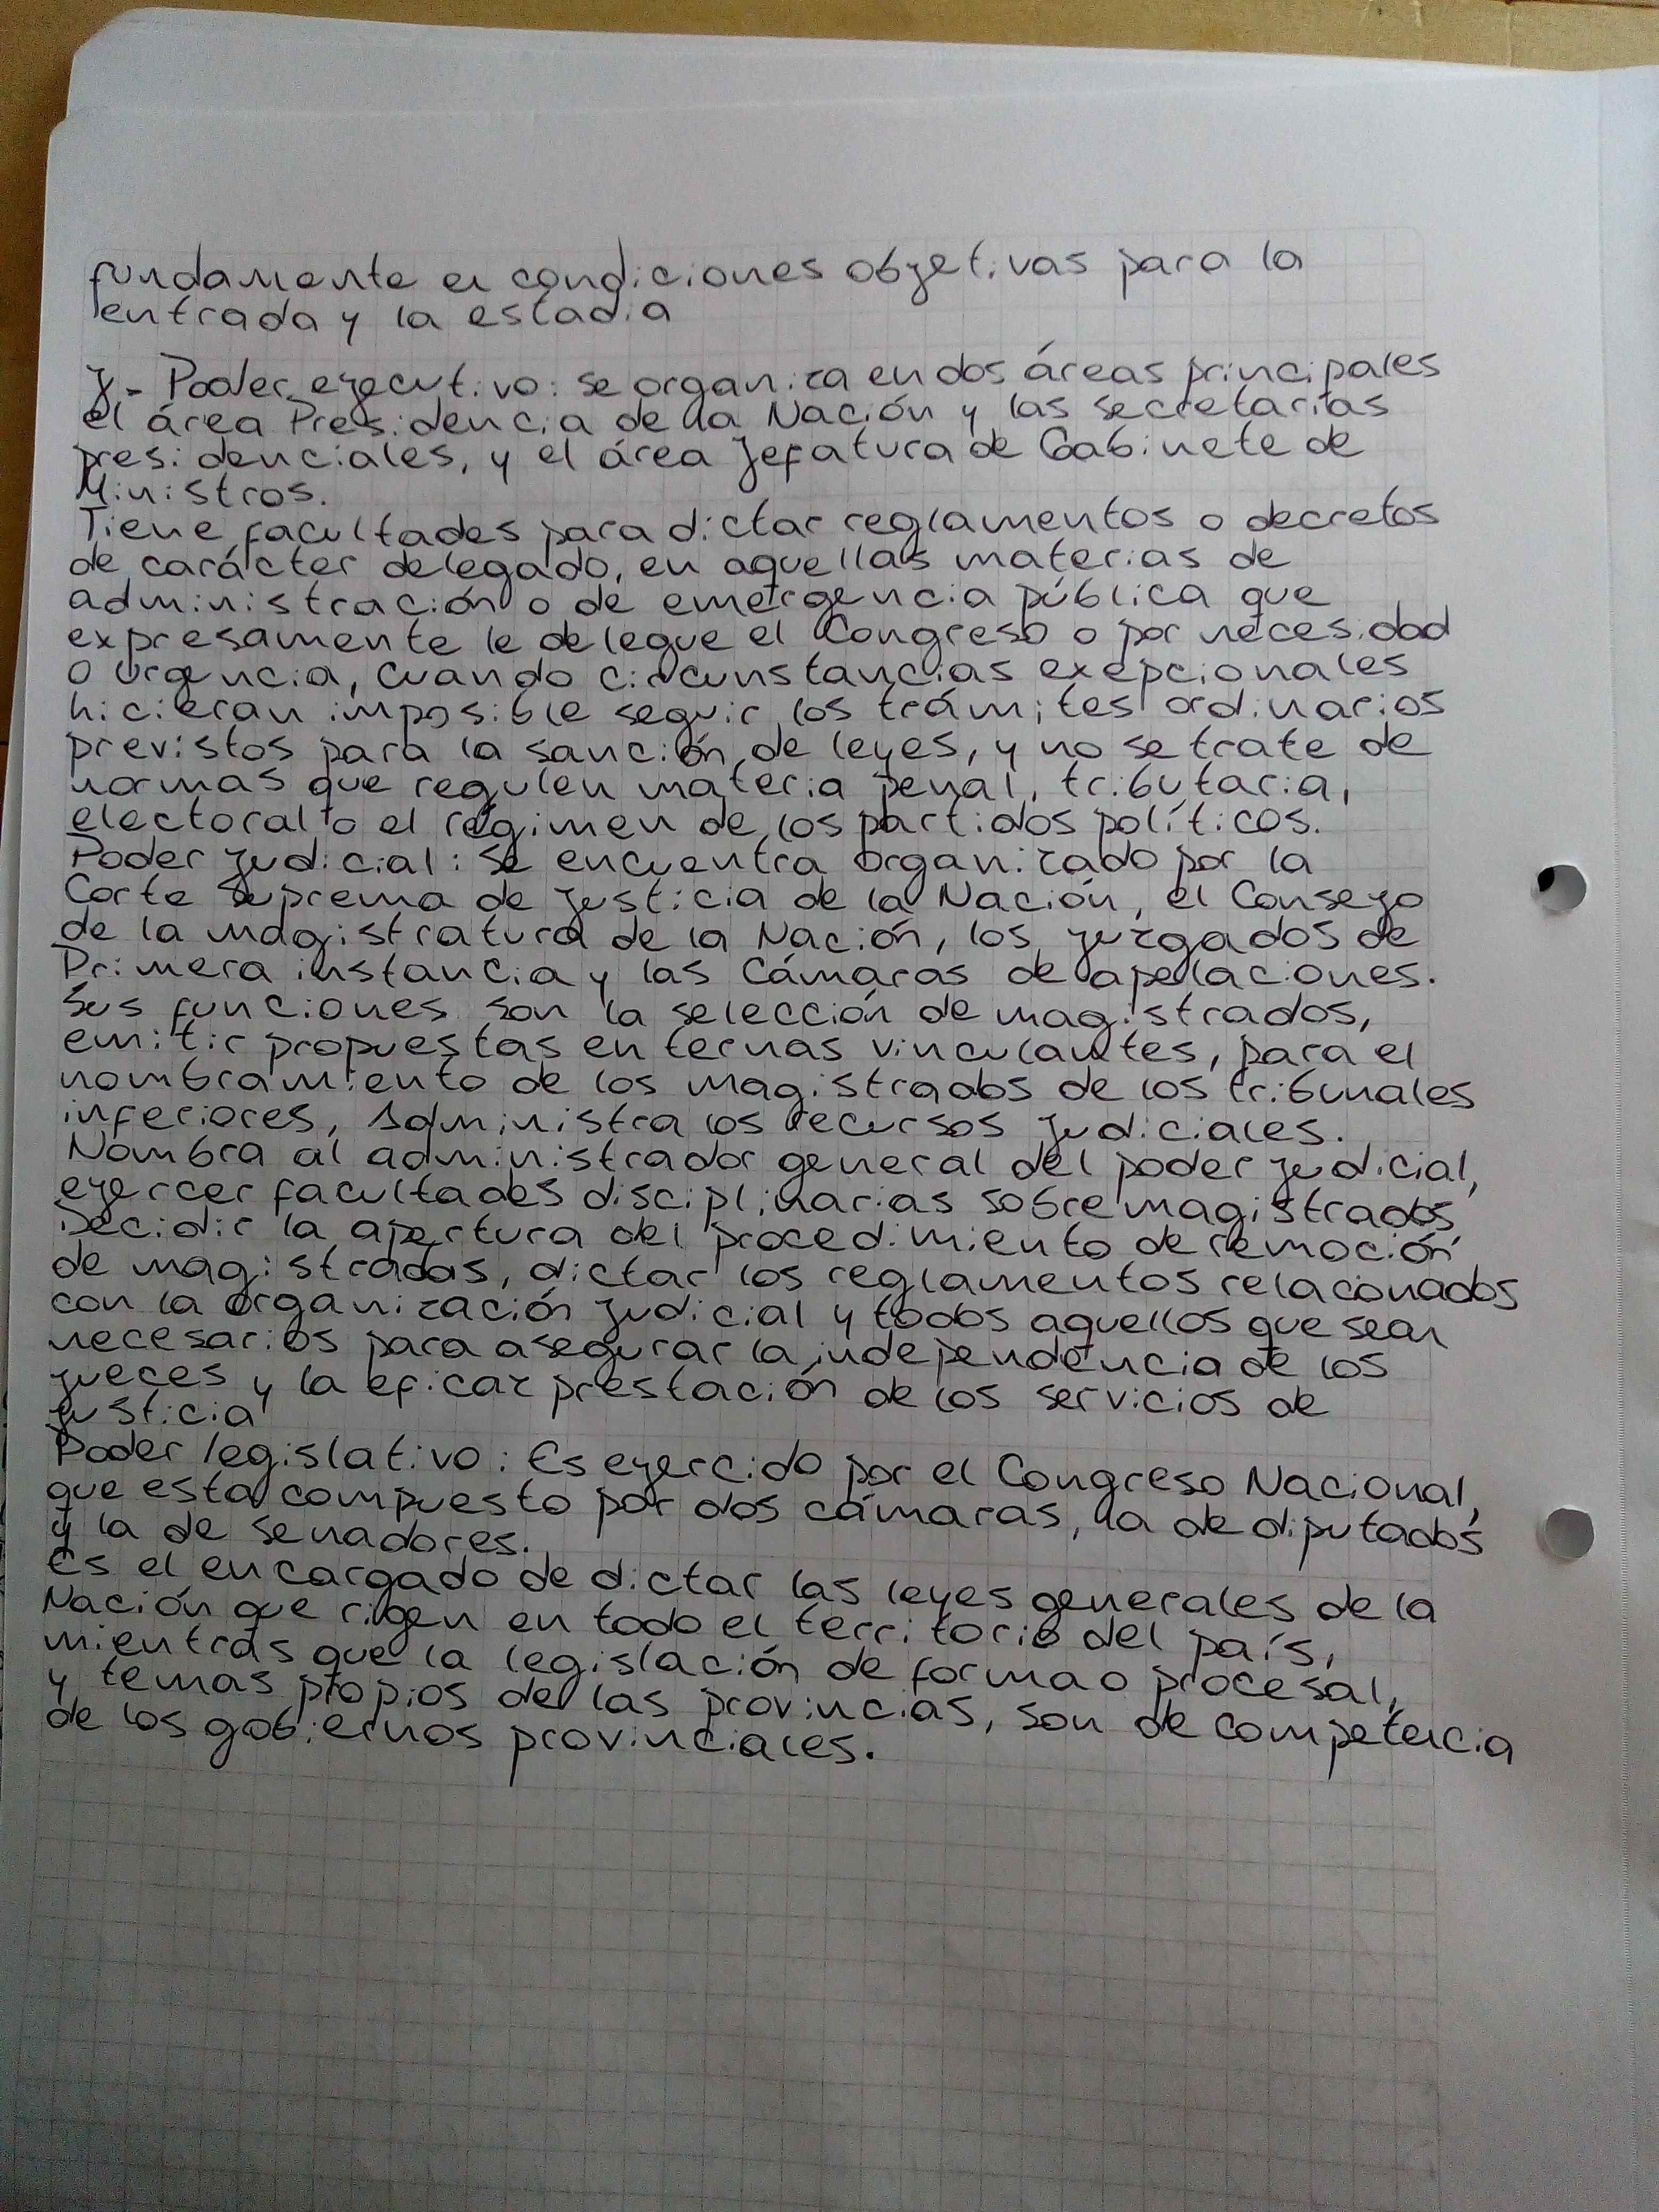 fundamente en condiciones objetivas para la
entrada y la estadia
7- Poder ejecutivo: se organiza en dos áreas principales
el área Presidencia de la Nación y las secretarías
presidenciales, y el área Jefatura de Gabinete de
Ministros.
Tiene facultades para dictar reglamentos o decretos
de carácter delegado, en aquellas materias de
administración o de emergencia pública que
expresamente le delegue el Congreso o por necesidad
o urgencia, cuando circunstancias exepcionales
hicieran imposible seguir los trámites ordinarios
previstos para la sanción de leyes, y no se trate de
normas que regulen materia penal, tributaria,
electoral o el régimen de los partidos políticos.
Poder judicial: se encuentra organizado por la
Corte Suprema de justicia de la Nación, el Consejo
de la magistratura de la Nación, los juzgados de
Primera instancia y las Cámaras de apelaciones.
Sus funciones son la selección de magistrados,
emitir propuestas en ternas vinculantes, para el
nombramiento de los magistrados de los tribunales
inferiores, Administra los recursos judiciales.
Nombra al administrador general del poder judicial,
ejercer facultades disciplinarias sobre magistrados
Decidir la apertura del procedimiento de remoción
de magistrados, dictar los reglamentos relacionados
con la organización judicial y todos aquellos que sean
necesarios para asegurar la independencia de los
jueces y la eficaz prestación de los servicios de
justicia
Poder legislativo: Es ejercido por el Congreso Nacional,
que esta compuesto por dos cámaras, la de diputados
y la de senadores.
Es el encargado de dictar las leyes generales de la
Nación que rigen en todo el territorio del país,
mientras que la legislación de forma o procesal,
y temas propios de las provincias, son de competencia
de los gobiernos provinciales.